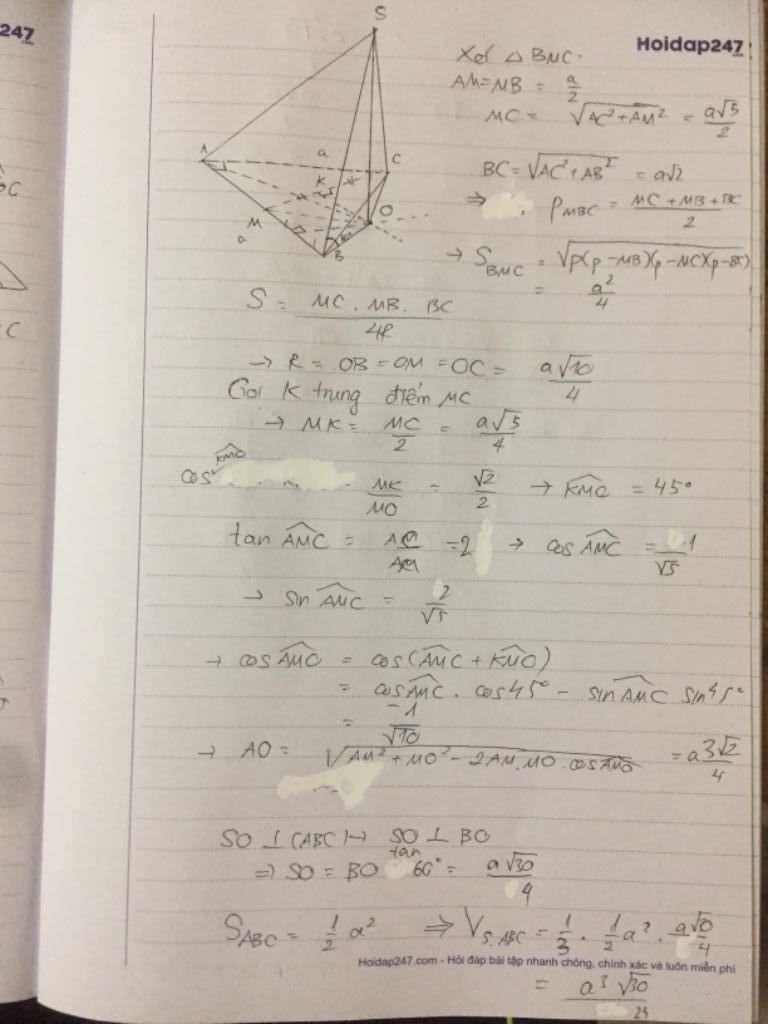 247
Hoidap247
S
A
a
C
K
O
M
a
B
C
C
Xét △ BMC.
AM=MB = a/2
MC = √(AC²+AM²) = a√5/2
BC = √(AC²+AB²) = a√2
⇒ P_MBC = (MC + MB + BC)/2
→ S_BMC = √(p(p-MB)(p-MC)(p-BC))
= a²/4
S = (MC . MB . BC)/4R
→ R = OB = OM = OC = a√10/4
Gọi K trung điểm MC
→ MK = MC/2 = a√5/4
cos KMO MK/MO = √2/2 → KMO = 45°
tan AMC = AC/AM = 2 → cos AMC = 1/√5
→ sin AMC = 2/√5
→ cos AMO = cos(AMC + KMO)
= cos AMC . cos 45° - sin AMC sin 45°
= -1/√10
→ AO = √(AM² + MO² - 2AM.MO.cos AMO) = a3√2/4
SO ⊥ (ABC) → SO ⊥ BO
⇒ SO = BO tan 60° = a√30/4
S_ABC = 1/2 a² ⇒ V_S.ABC = 1/3 . 1/2 a² .
Hoidap247.com - Hỏi đáp bài tập nhanh chóng, chính xác và luôn miễn phí
= a³√30/24